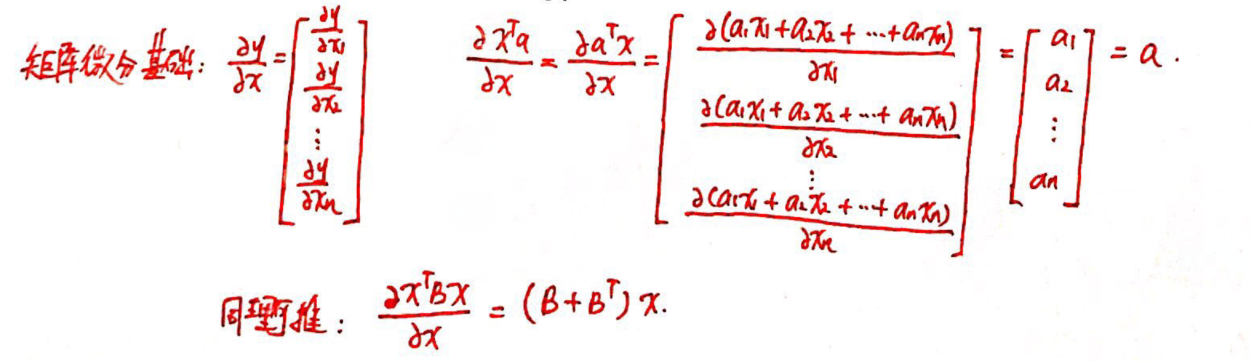 矩阵微分基础: ∂y/∂x = [∂y/∂x₁ ∂y/∂x₂ ⋮ ∂y/∂xₙ] ∂xᵀa/∂x = ∂aᵀx/∂x = [∂(a₁x₁+a₂x₂+⋯+aₙxₙ)/∂x₁ ∂(a₁x₁+a₂x₂+⋯+aₙxₙ)/∂x₂ ⋮ ∂(a₁x₁+a₂x₂+⋯+aₙxₙ)/∂xₙ] = [a₁ a₂ ⋮ aₙ] = a.
同理可推: ∂xᵀBx/∂x = (B+Bᵀ)x.